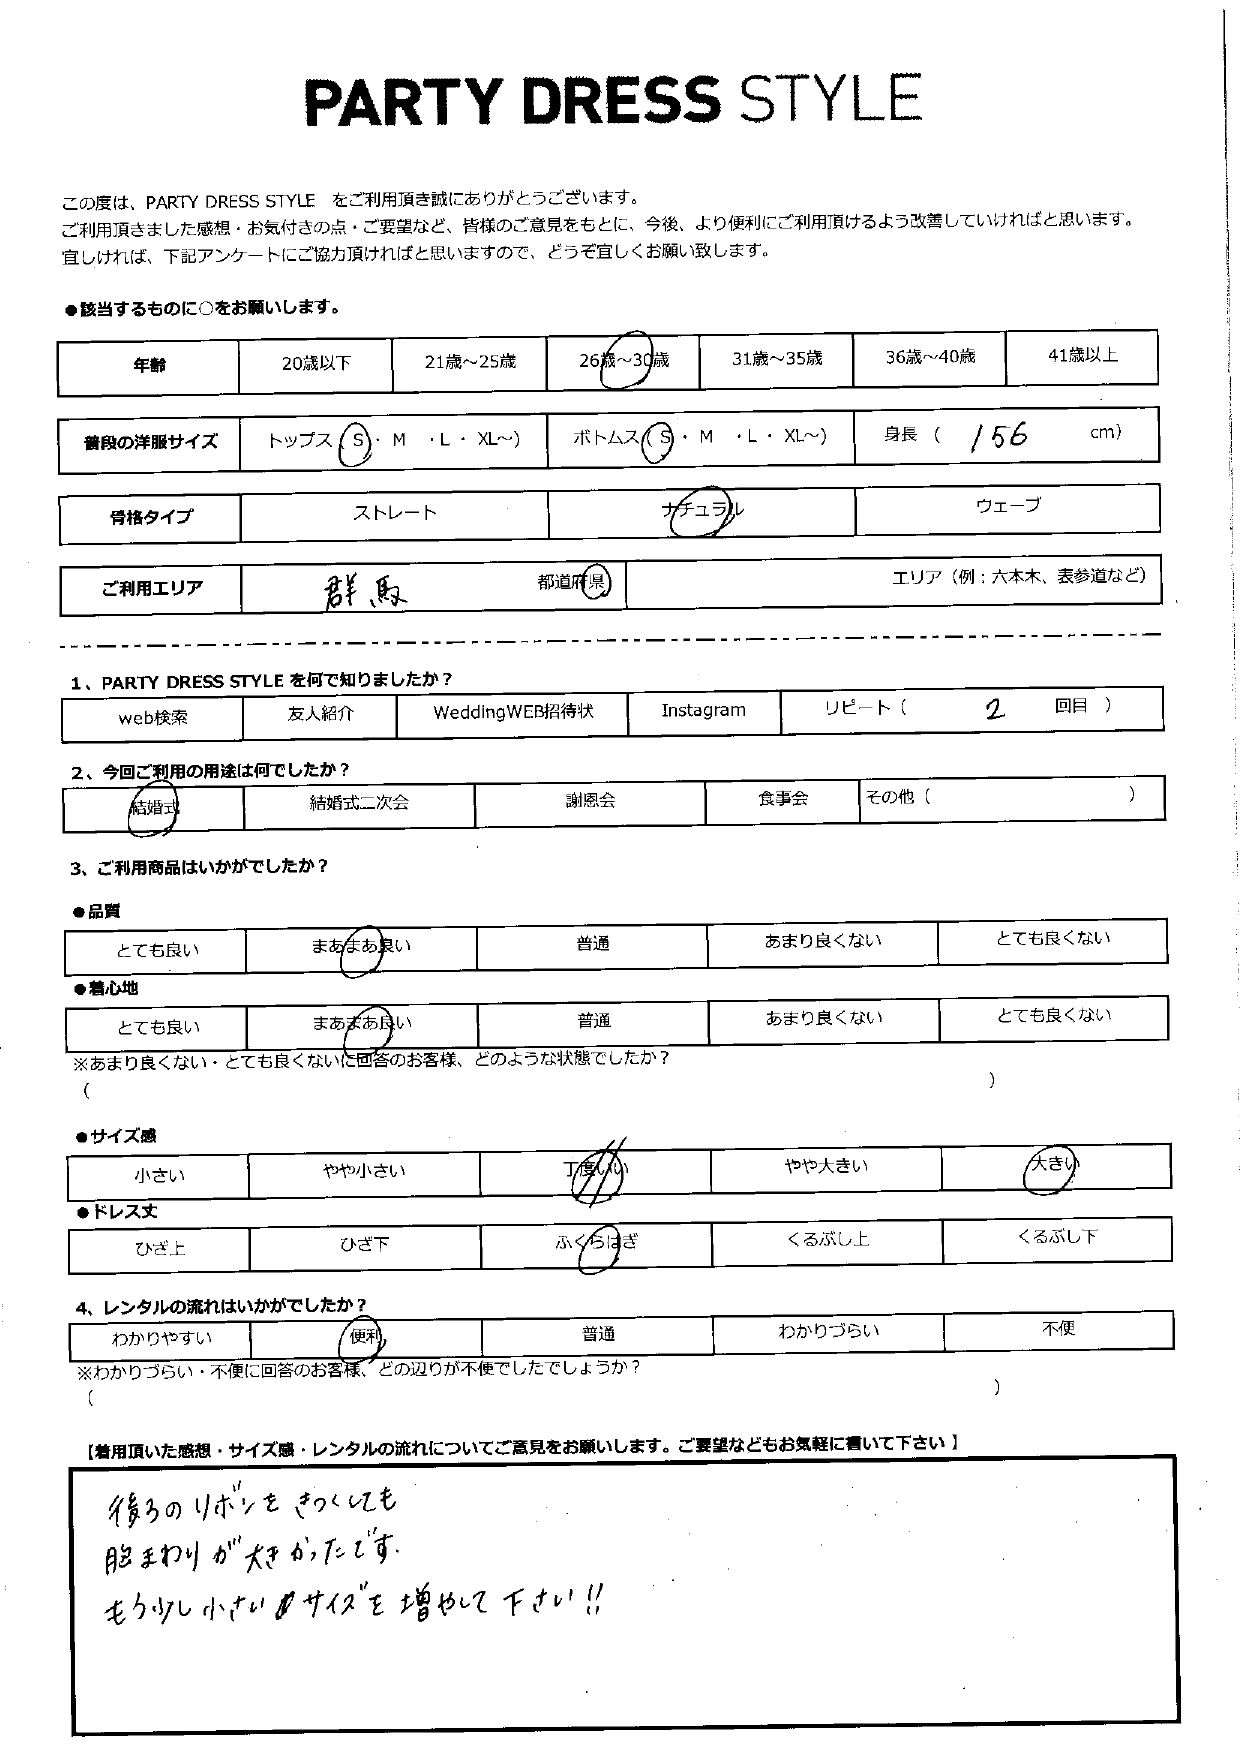 PARTY DRESS STYLE
この度は、PARTY DRESS STYLE　をご利用頂き誠にありがとうございます。
ご利用頂きました感想・お気付きの点・ご要望など、皆様のご意見をもとに、今後、より便利にご利用頂けるよう改善していければと思います。
宜しければ、下記アンケートにご協力頂ければと思いますので、どうぞ宜しくお願い致します。
●該当するものに○をお願いします。
年齢 20歳以下 21歳～25歳 26歳～30歳 31歳～35歳 36歳～40歳 41歳以上
普段の洋服サイズ トップス（S・ M ・L・ XL～) ボトムス（S・ M ・L・ XL～) 身長（ 156 cm)
骨格タイプ ストレート ナチュラル ウェーブ
ご利用エリア 群馬 都道府県 エリア（例：六本木、表参道など）
1、PARTY DRESS STYLE を何で知りましたか？
web検索 友人紹介 WeddingWEB招待状 Instagram リピート（ 2 回目 ）
2、今回ご利用の用途は何でしたか？
結婚式 結婚式二次会 謝恩会 食事会 その他（ ）
3、ご利用商品はいかがでしたか？
●品質
とても良い まあまあ良い 普通 あまり良くない とても良くない
●着心地
とても良い まあまあ良い 普通 あまり良くない とても良くない
※あまり良くない・とても良くないに回答のお客様、どのような状態でしたか？
（ ）
●サイズ感
小さい やや小さい 丁度いい やや大きい 大きい
●ドレス丈
ひざ上 ひざ下 ふくらはぎ くるぶし上 くるぶし下
4、レンタルの流れはいかがでしたか？
わかりやすい 便利 普通 わかりづらい 不便
※わかりづらい・不便に回答のお客様、どの辺りが不便でしたでしょうか？
（ ）
【着用頂いた感想・サイズ感・レンタルの流れについてご意見をお願いします。ご要望などもお気軽に書いて下さい】
後ろのリボンをきつくしても
胸まわりが大きかったです.
もう少し小さいサイズを増やして下さい!!